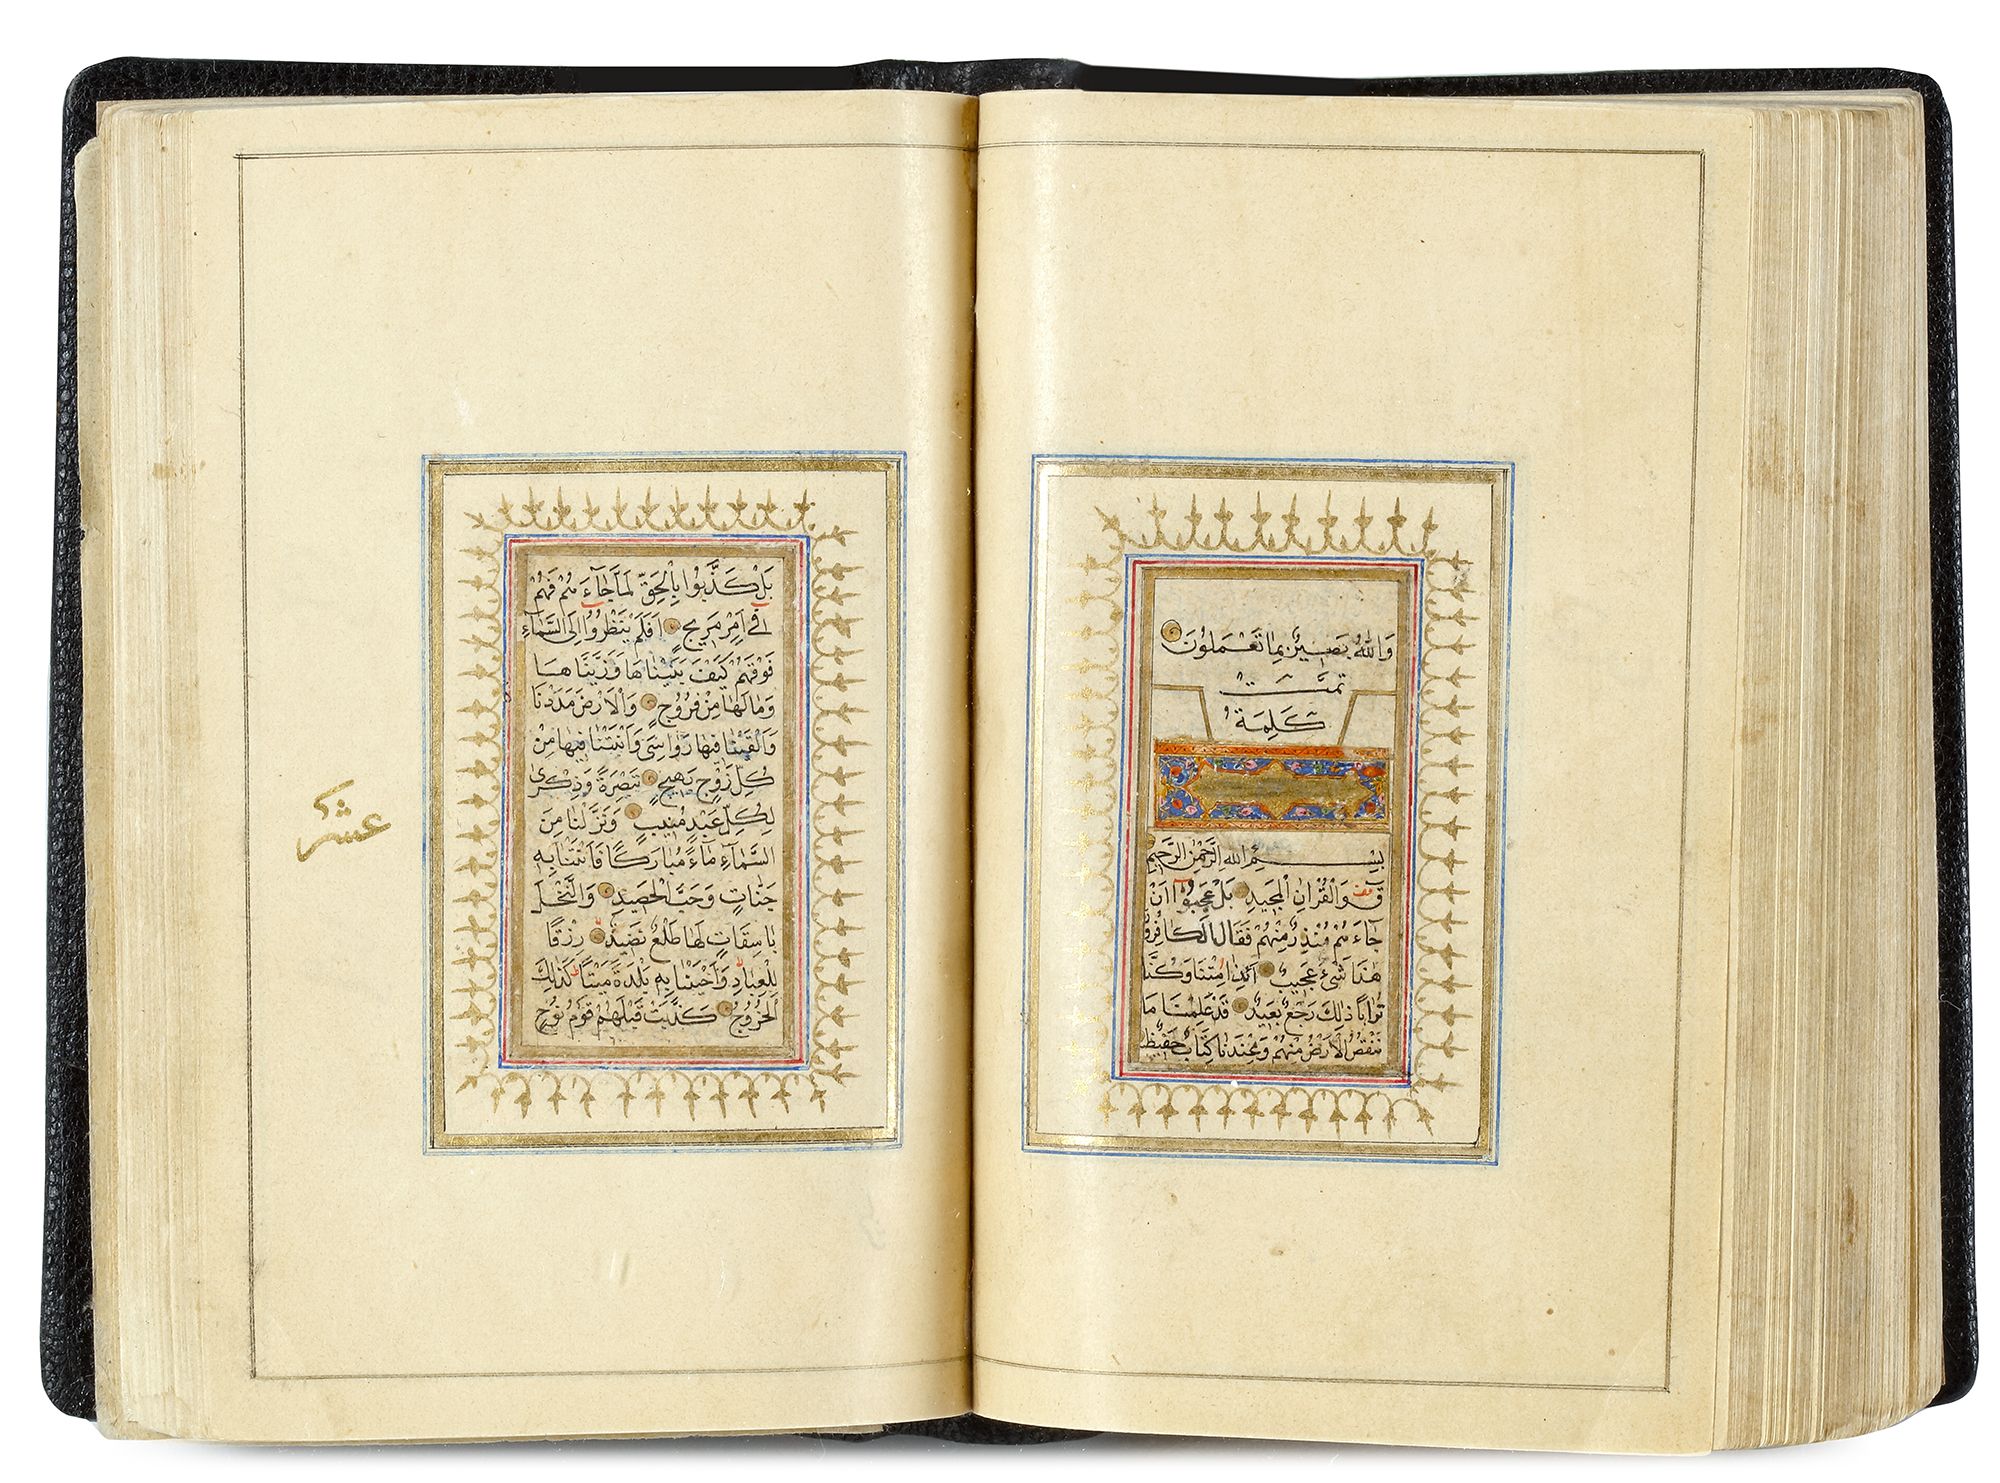 وَاللّٰهُ بَصِيرٌ بِمَا تَعْمَلُونَ
تمَّتْ
كَلِمَةُ
بِسْمِ اللهِ الرَّحْمٰنِ الرَّحِيمِ
قٓ وَالْقُرْاٰنِ الْمَجِيدِ بَلْ عَجِبُوا اَنْ
جَاءَهُمْ مُنْذِرٌ مِنْهُمْ فَقَالَ الْكَافِرُو
هٰذَا شَىْءٌ عَجِيبٌ ءَاِذَا مِتْنَا وَكُنَّا
تُرَابًا ذٰلِكَ رَجْعٌ بَعِيدٌ قَدْ عَلِمْنَا مَا
تَنْقُصُ الْاَرْضُ مِنْهُمْ وَعِنْدَنَا كِتَابٌ حَفِيظٌ
بَلْ كَذَّبُوا بِالْحَقِّ لَمَّا جَآءَهُمْ فَهُمْ
فِى اَمْرٍ مَرِيجٍ اَفَلَمْ يَنْظُرُوا اِلَى السَّمَآءِ
فَوْقَهُمْ كَيْفَ بَنَيْنَاهَا وَزَيَّنَّاهَا
وَمَا لَهَا مِنْ فُرُوجٍ وَالْاَرْضَ مَدَدْنَا
وَاَلْقَيْنَا فِيهَا رَوَاسِىَ وَاَنْبَتْنَا فِيهَا مِنْ
كُلِّ زَوْجٍ بَهِيجٍ تَبْصِرَةً وَذِكْرٰى
لِكُلِّ عَبْدٍ مُنِيبٍ وَنَزَّلْنَا مِنَ
السَّمَآءِ مَآءً مُبَارَكًا فَاَنْبَتْنَا بِهِ
جَنَّاتٍ وَحَبَّ الْحَصِيدِ وَالنَّخْلَ
بَاسِقَاتٍ لَهَا طَلْعٌ نَضِيدٌ رِزْقًا
لِلْعِبَادِ وَاَحْيَيْنَا بِهِ بَلْدَةً مَيْتًا كَذٰلِكَ
الْخُرُوجُ كَذَّبَتْ قَبْلَهُمْ قَوْمُ نُوحٍ
عشر